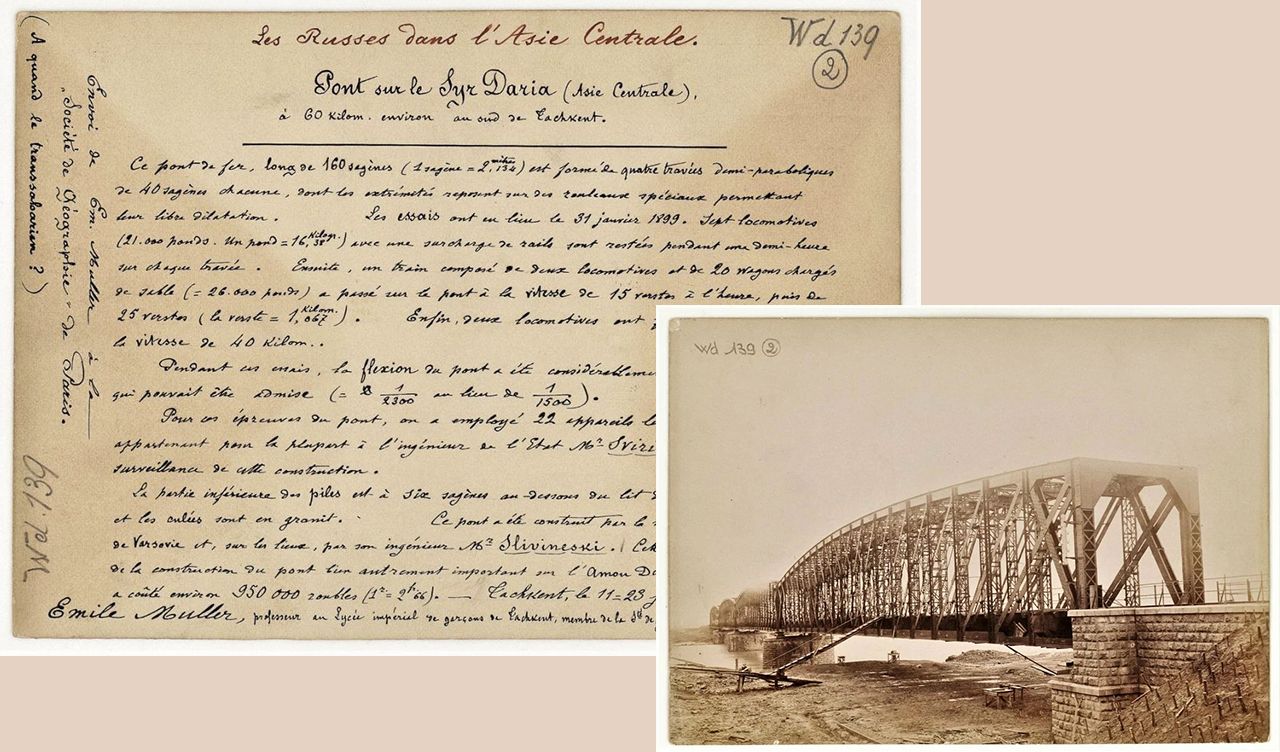 Les Russes dans l'Asie Centrale.
Wd 139
2
Pont sur le Syr Daria (Asie Centrale),
à 60 Kilom. environ au sud de Tachkent.
Ce pont de fer, long de 160 sagènes (1 sagène = 2,mètres 134) est formé de quatre travées demi-paraboliques
de 40 sagènes chacune, dont les extrémités reposent sur des rouleaux spéciaux permettant
leur libre dilatation. Les essais ont eu lieu le 31 janvier 1899. Sept locomotives
(21.000 pouds. Un poud = 16,Kilogr. 38) avec une surcharge de rails sont restées pendant une demi-heure
sur chaque travée. Ensuite, un train composé de deux locomotives et de 20 wagons chargés
de sable (= 26.000 pouds) a passé sur le pont à la vitesse de 15 verstes à l'heure, puis de
25 verstes (la verste = 1,Kilom. 067). Enfin, deux locomotives ont
la vitesse de 40 Kilom..
Pendant ces essais, la flexion du pont a été considérableme
qui pouvait être admise (= 1/2300 au lieu de 1/1500).
Pour ces épreuves du pont, on a employé 22 appareils
appartenant pour la plupart à l'ingénieur de l'Etat Mr Sviri
surveillance de cette construction.
La partie inférieure des piles est à six sagènes au-dessous du lit
et les culées sont en granit. Ce pont a été construit par la
de Varsovie et, sur les lieux, par son ingénieur Mr Slivineski.
de la construction du pont bien autrement important sur l'Amou Da
a coûté environ 950 000 roubles (1r = 2f 66). — Tachkent, le 11-23 j
Emile Muller, professeur au Lycée impérial de garçons de Tachkent, membre de la Sté de
Envoi de Em. Muller à la
"Société de Géographie" de Paris.
(A quand le transsaharien ?)
Wd 139
Wd 139 2